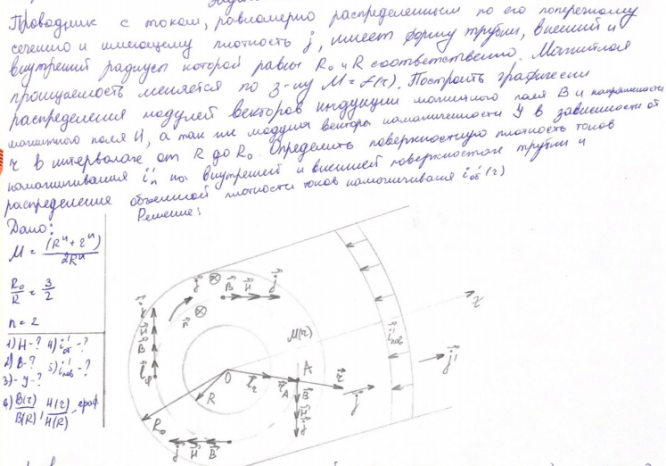 Проводник с током, равномерно распределенным по его поперечному
сечению и имеющему плотность j, имеет форму трубки, внешний и
внутренний радиусы которой равны R₀ и R соответственно. Магнитная
проницаемость меняется по з-ну M = f(r). Построить графически
распределения модулей векторов индукции магнитного поля B и напряженности
магнитного поля H, а так же модуля вектора намагниченности J в зависимости от
r в интервале от R до R₀. Определить поверхностную плотность токов
намагничивания i'п на внутренней и внешней поверхностях трубки и
распределение объемной плотности токов намагничивания i'об (r)
Решение:
Дано:
M = (Rⁿ + rⁿ) / 2Rⁿ
R₀/R = 3/2
n = 2
1) H-? 4) i'об-?
2) B-? 5) i'пов-?
3) J-?
6) B(r)/B(R), H(r)/H(R) граф
B H j
M(r)
O A r
R R₀
B H j
i'пов
j'
z